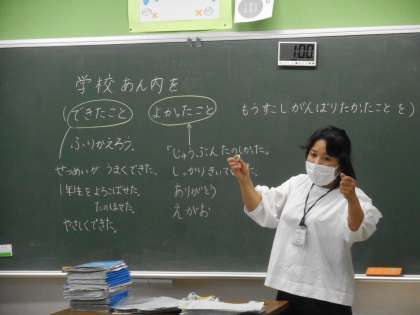 1:00
学校あん内を
(できたこと よかったこと もうすこしがんばりたかったことを)
ふりかえろう。
せつめいが うまくできた。
1年生をよろこばせた。
たのしませた。
やさしくできた。
「じゅうぶんたのしかった。
しっかりきいて
ありがとう
えがお